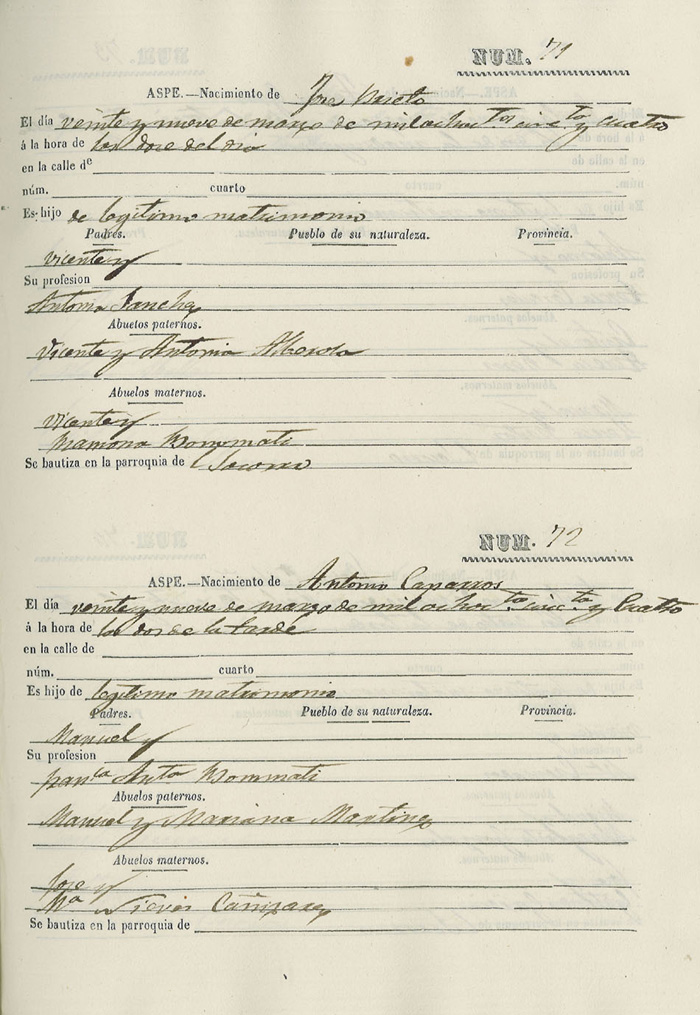 NUM. 71
ASPE.—Nacimiento de Jose
El día veinte y nueve de marzo de mil ochoc.tos cinc.ta y cuatro
á la hora de las doce del dia
en la calle de
núm. cuarto
Es hijo de legitimo matrimonio
Padres. Pueblo de su naturaleza. Provincia.
Vicente y
Su profesion
Antonia Sanchez
Abuelos paternos.
Vicente y Antonia Alberola
Abuelos maternos.
Vicente y
Ramona Bommati
Se bautiza en la parroquia de Socorro
NUM. 72
ASPE.—Nacimiento de Antonio Caparros
El día veinte y nueve de marzo de mil ochoc.tos cinc.ta y cuatro
á la hora de las dos de la tarde
en la calle de
núm. cuarto
Es hijo de legitimo matrimonio
Padres. Pueblo de su naturaleza. Provincia.
Manuel y
Su profesion
Fran.ca Ant.a Bommati
Abuelos paternos.
Manuel y Mariana Martinez
Abuelos maternos.
Jose y
M.a Nieves Cañizarez
Se bautiza en la parroquia de